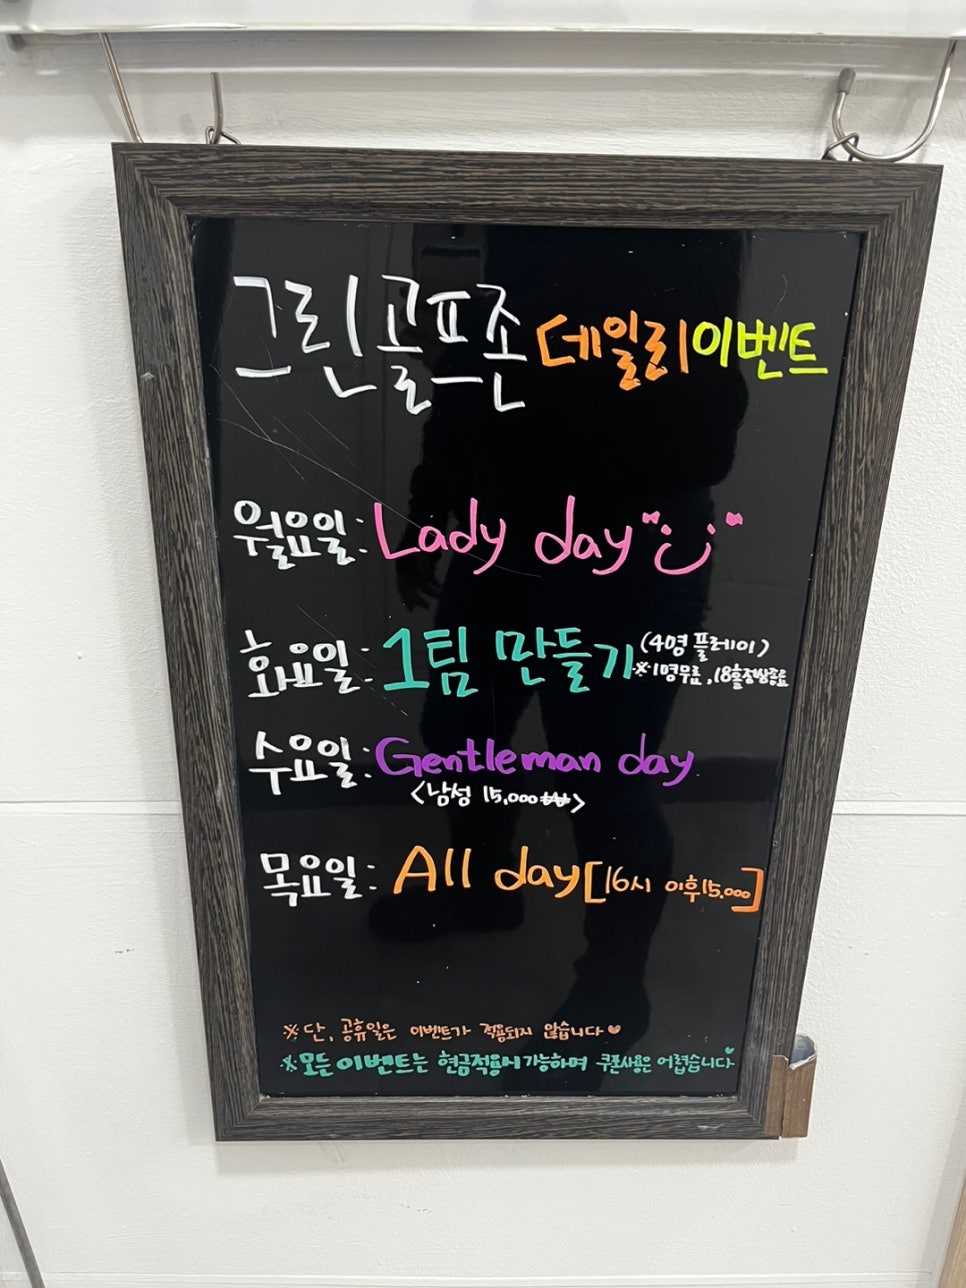 그린골프존 데일리이벤트
월요일: Lady day
화요일: 1팀 만들기 (4명 플레이)
※1명무료,
수요일: Gentleman day
<남성 15,000₩>
목요일: All day [16시 이후 15.000]
※단, 공휴일은 이벤트가 적용되지 않습니다♥
※모든이벤트는 현금적용시 가능하며 쿠폰사용은 어렵습니다♥